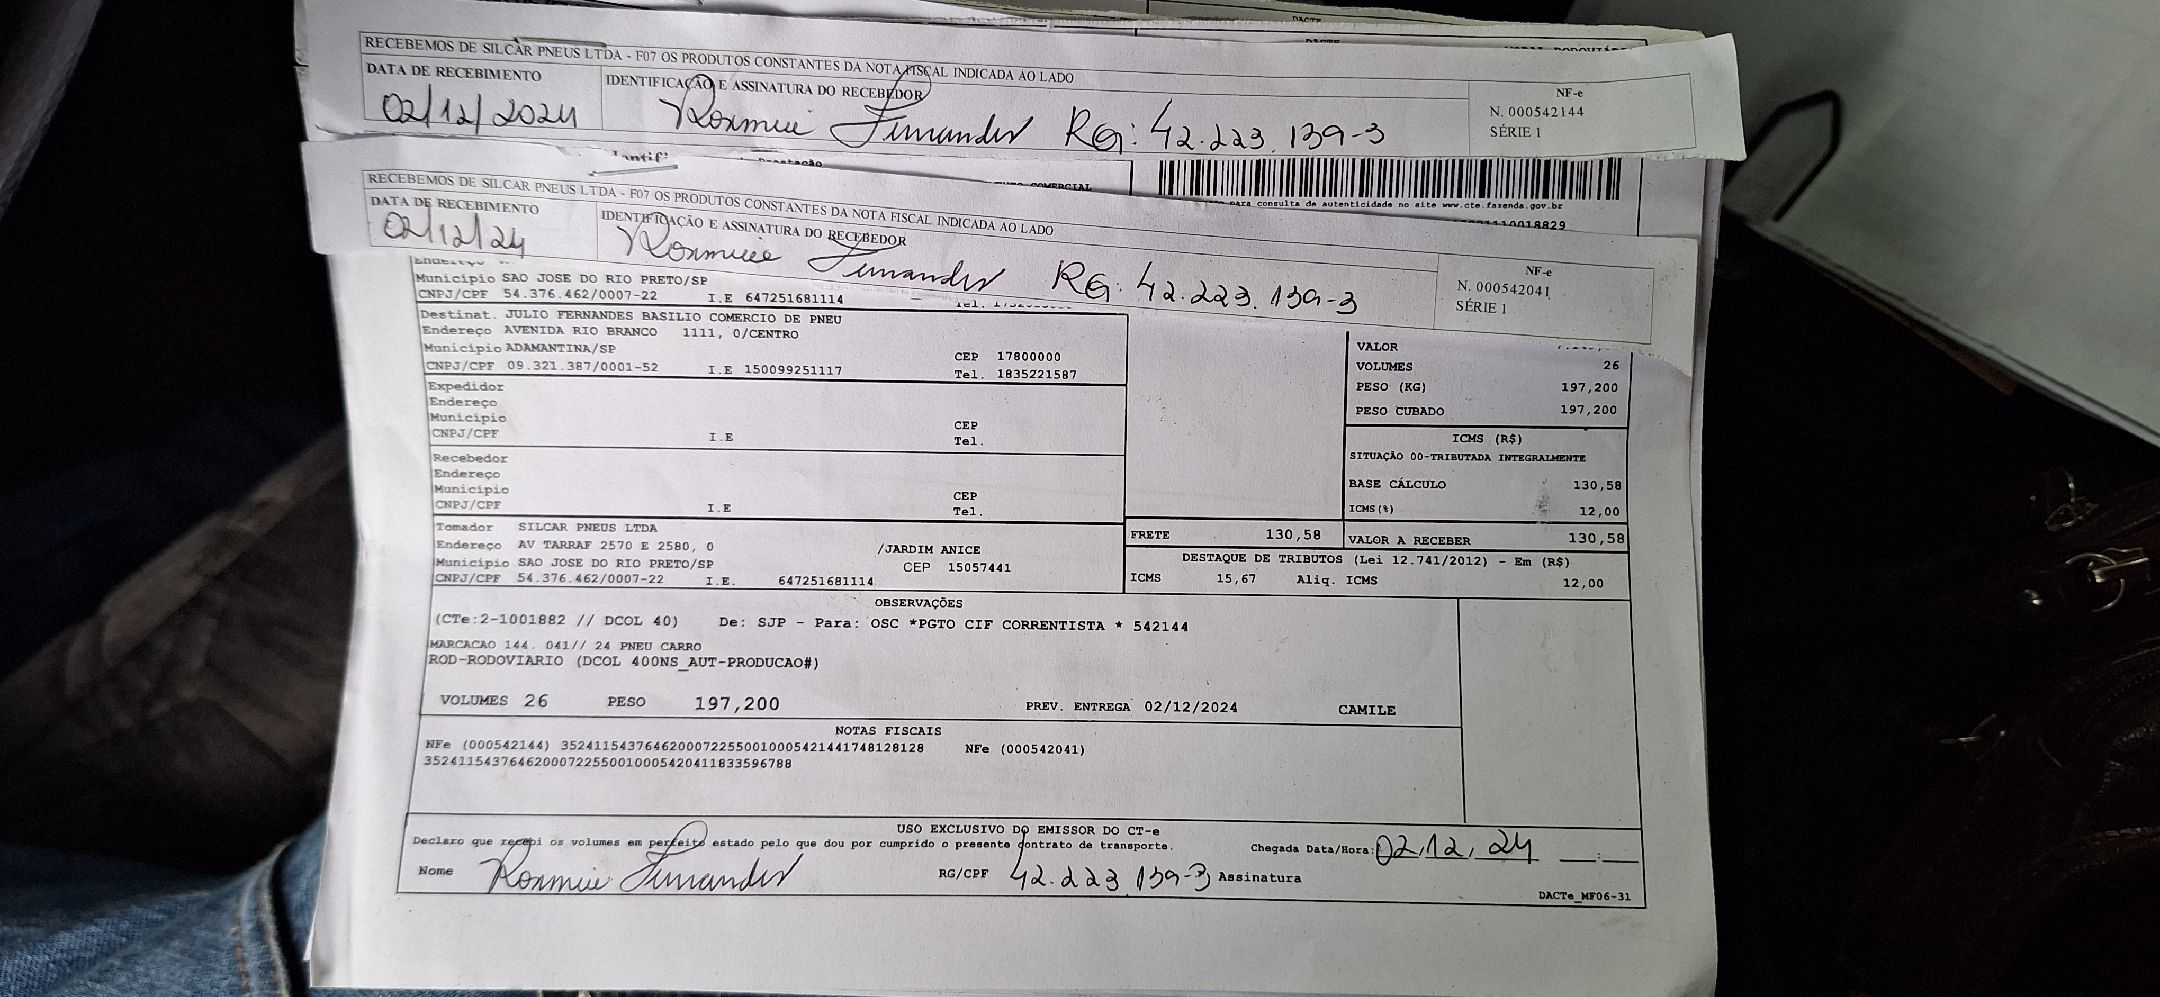 DACTE
RECEBEMOS DE SILCAR PNEUS LTDA - F07 OS PRODUTOS CONSTANTES DA NOTA FISCAL INDICADA AO LADO
DATA DE RECEBIMENTO
02/12/2024
IDENTIFICAÇÃO E ASSINATURA DO RECEBEDOR
Fernandes RG: 42.223.139-3
NF-e
N. 000542144
SÉRIE 1
para consulta de autenticidade no site www.cte.fazenda.gov.br
RECEBEMOS DE SILCAR PNEUS LTDA - F07 OS PRODUTOS CONSTANTES DA NOTA FISCAL INDICADA AO LADO
DATA DE RECEBIMENTO
02/12/24
IDENTIFICAÇÃO E ASSINATURA DO RECEBEDOR
Fernandes RG: 42.223.139-3
NF-e
N. 000542041
SÉRIE 1
Município SAO JOSE DO RIO PRETO/SP
CNPJ/CPF 54.376.462/0007-22 I.E 647251681114
Destinat. JULIO FERNANDES BASILIO COMERCIO DE PNEU
Endereço AVENIDA RIO BRANCO 1111, 0/CENTRO
Município ADAMANTINA/SP CEP 17800000
CNPJ/CPF 09.321.387/0001-52 I.E 150099251117 Tel. 1835221587
Expedidor
Endereço
Município CEP
CNPJ/CPF I.E Tel.
Recebedor
Endereço
Município CEP
CNPJ/CPF I.E Tel.
Tomador SILCAR PNEUS LTDA
Endereço AV TARRAF 2570 E 2580, 0 /JARDIM ANICE
Município SAO JOSE DO RIO PRETO/SP CEP 15057441
CNPJ/CPF 54.376.462/0007-22 I.E. 647251681114
VALOR
VOLUMES 26
PESO (KG) 197,200
PESO CUBADO 197,200
ICMS (R$)
SITUAÇÃO 00-TRIBUTADA INTEGRALMENTE
BASE CÁLCULO 130,58
ICMS(%) 12,00
FRETE 130,58 VALOR A RECEBER 130,58
DESTAQUE DE TRIBUTOS (Lei 12.741/2012) - Em (R$)
ICMS 15,67 Aliq. ICMS 12,00
OBSERVAÇÕES
(CTe:2-1001882 // DCOL 40) De: SJP - Para: OSC *PGTO CIF CORRENTISTA * 542144
MARCACAO 144. 041// 24 PNEU CARRO
ROD-RODOVIARIO (DCOL 400NS_AUT-PRODUCAO#)
VOLUMES 26 PESO 197,200 PREV. ENTREGA 02/12/2024 CAMILE
NOTAS FISCAIS
NFe (000542144) 35241154376462000722550010005421441748128128 NFe (000542041)
35241154376462000722550010005420411833596788
USO EXCLUSIVO DO EMISSOR DO CT-e
Declaro que recebi os volumes em perfeito estado pelo que dou por cumprido o presente contrato de transporte. Chegada Data/Hora: 02.12.24 __:__
Nome Fernandes RG/CPF 42.223.139-3 Assinatura
DACTe_MF06-31